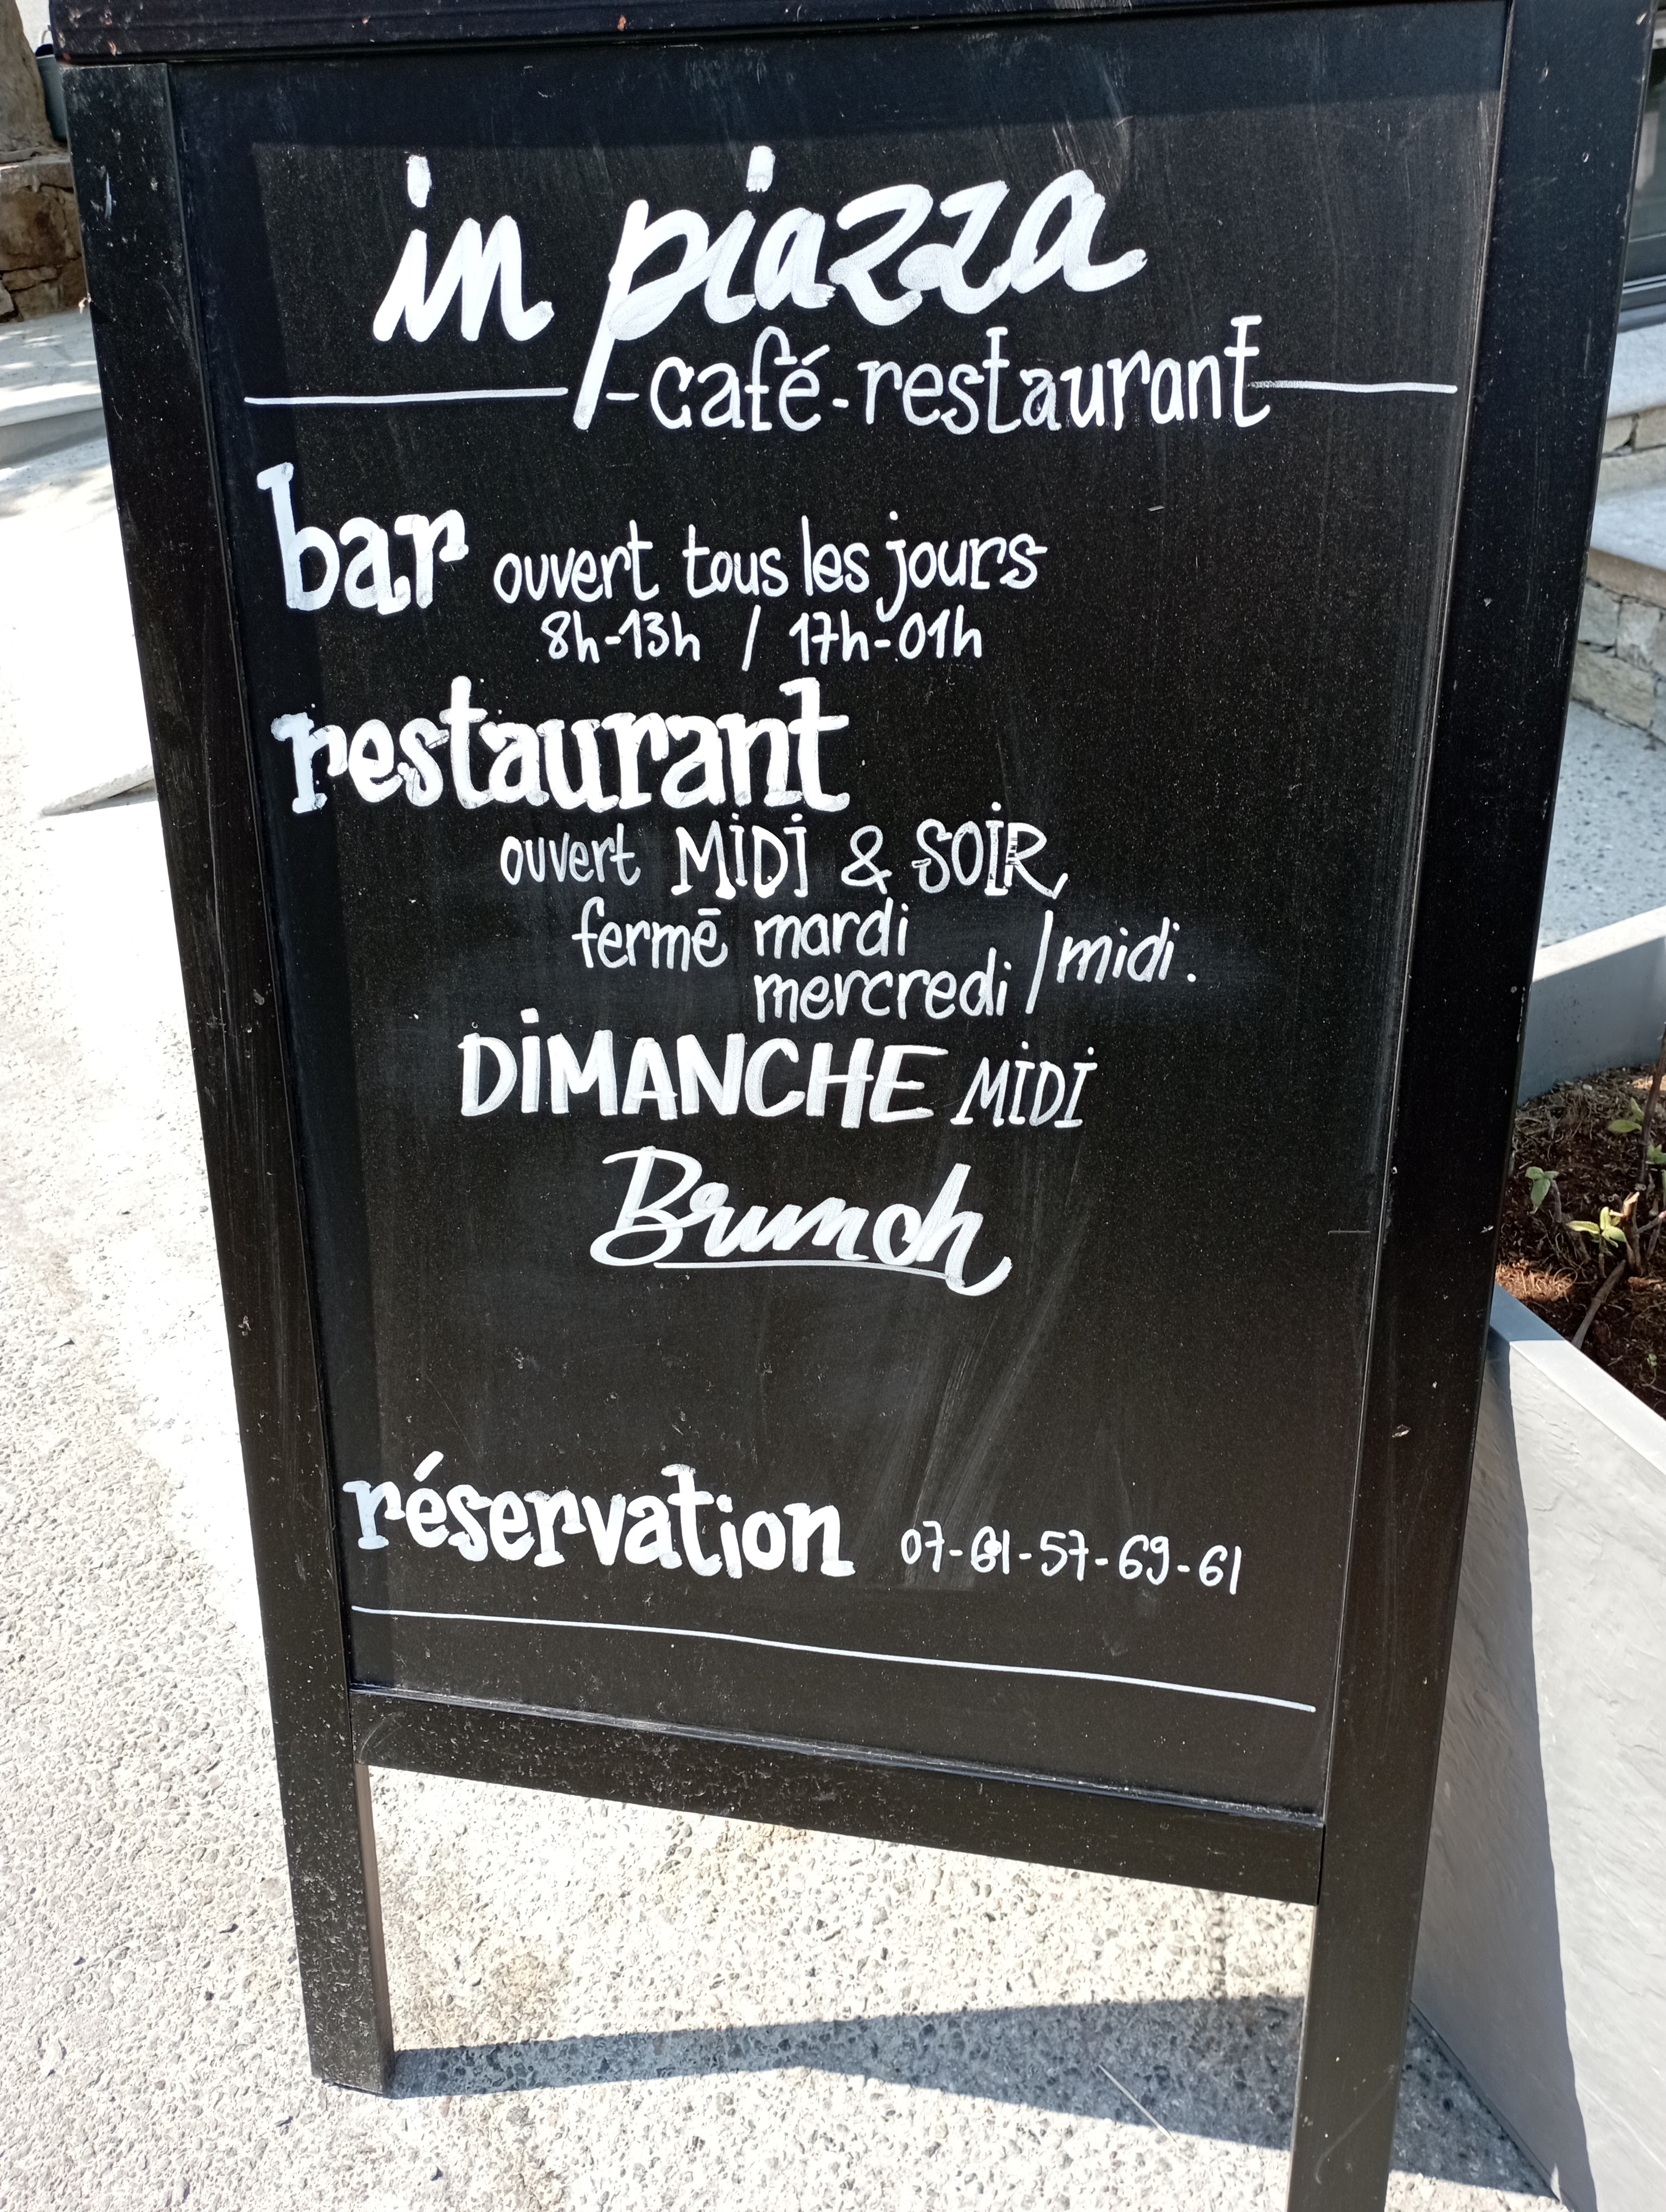 in piazza
-café-restaurant
bar ouvert tous les jours
8h-13h / 17h-01h
restaurant
ouvert MiDi & SOiR,
fermē mardi
mercredi / midi.
DiMANCHE MiDi
Brunch
réservation 07-61-57-69-61